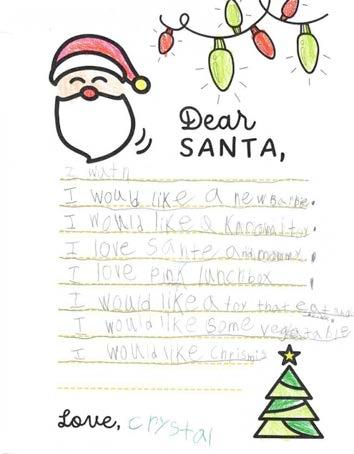 Dear
SANTA,
I
I would like a new Barbie.
I would like a
I love Sante and mommy
I love pink lunchbox
I would like a toy that
I would like some vegetable
I would like Chrismis
Love, crystal